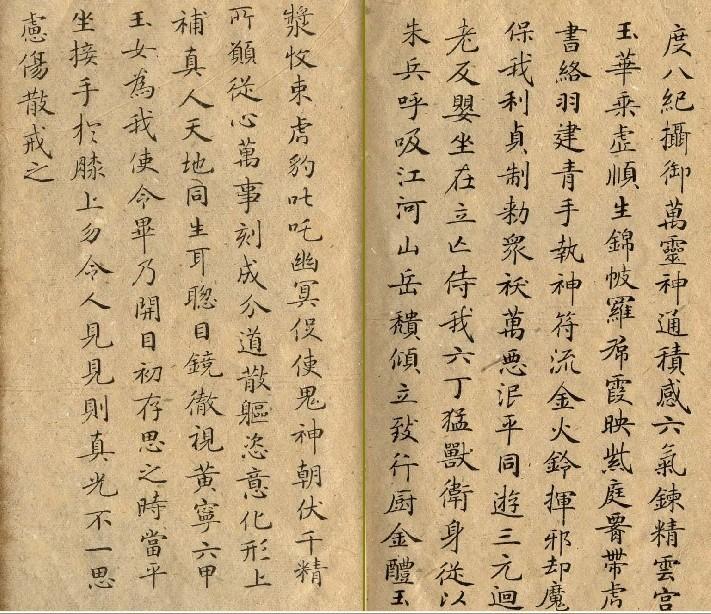 度八紀攝御萬靈神通積感六氣鍊精雲宮
玉華乘虛順生錦帔羅帬霞映紫庭腰帶虎
書絡羽建青手執神符流金火鈴揮邪却魔
保我利貞制勑衆祅萬惡泯平同遊三元迴
老反嬰坐在立亡侍我六丁猛獸衛身從以
朱兵呼吸江河山岳穨傾立致行厨金醴玉
漿收束虎豹叱吒幽冥役使鬼神朝伏千精
所願從心萬事刻成分道散軀恣意化形上
補真人天地同生耳聰目鏡徹視黃寧六甲
玉女為我使令畢乃開目初存思之時當平
坐接手於膝上勿令人見見則真光不一思
慮傷散戒之